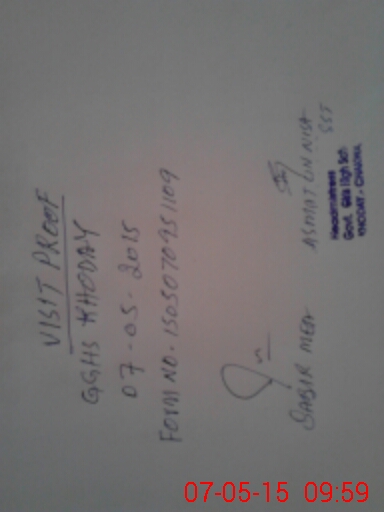 VISIT PROOF
GGHS KHODAY
07-05-2015
FORM NO. 15050709351109
SABIR MEA
ASMAT UN NISA
SST
Headmistress
Govt. Girls High Sch
KHODAY - CHAGHA
07-05-15 09:59